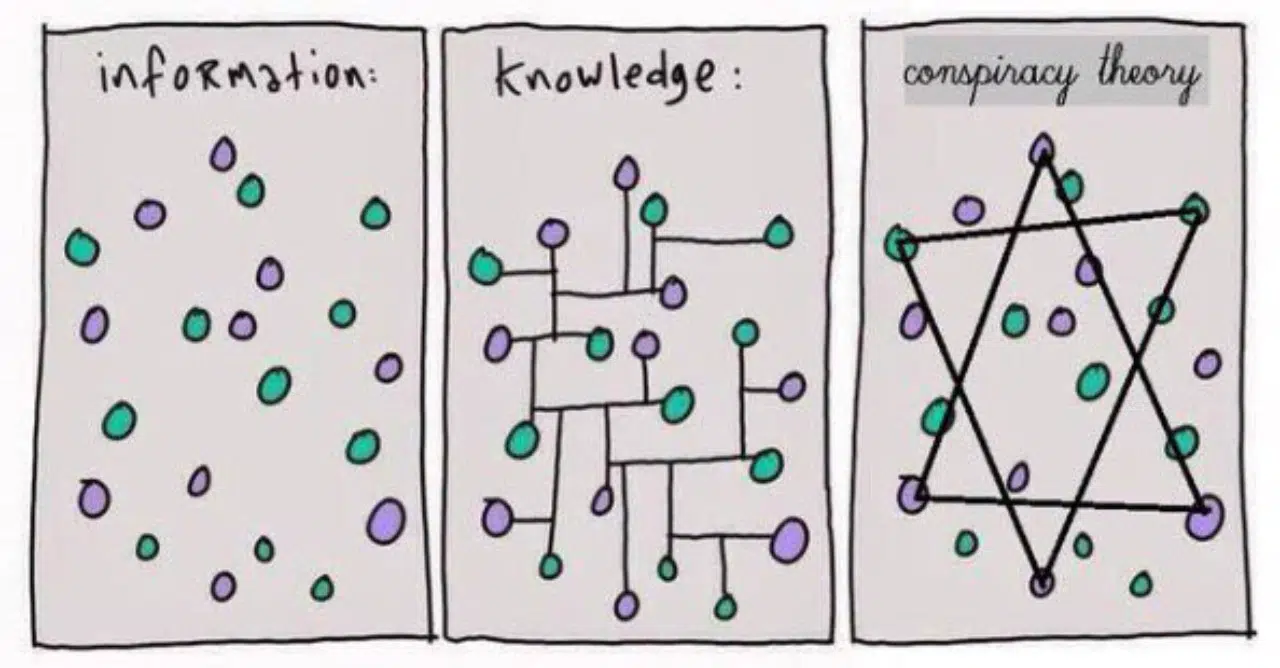 information:
knowledge:
conspiracy theory